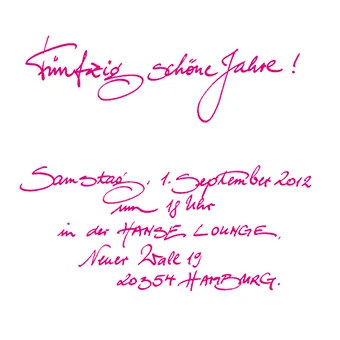 Fünfzig schöne Jahre!
Samstag, 1. September 2012
um 18 Uhr
in der HANSE LOUNGE,
Neuer Wall 19
20354 HAMBURG.